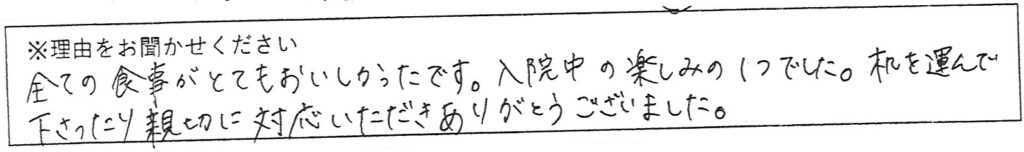 ※理由をお聞かせください
全ての食事がとてもおいしかったです。入院中の楽しみの1つでした。机を運んで
下さったり親切に対応いただきありがとうございました。